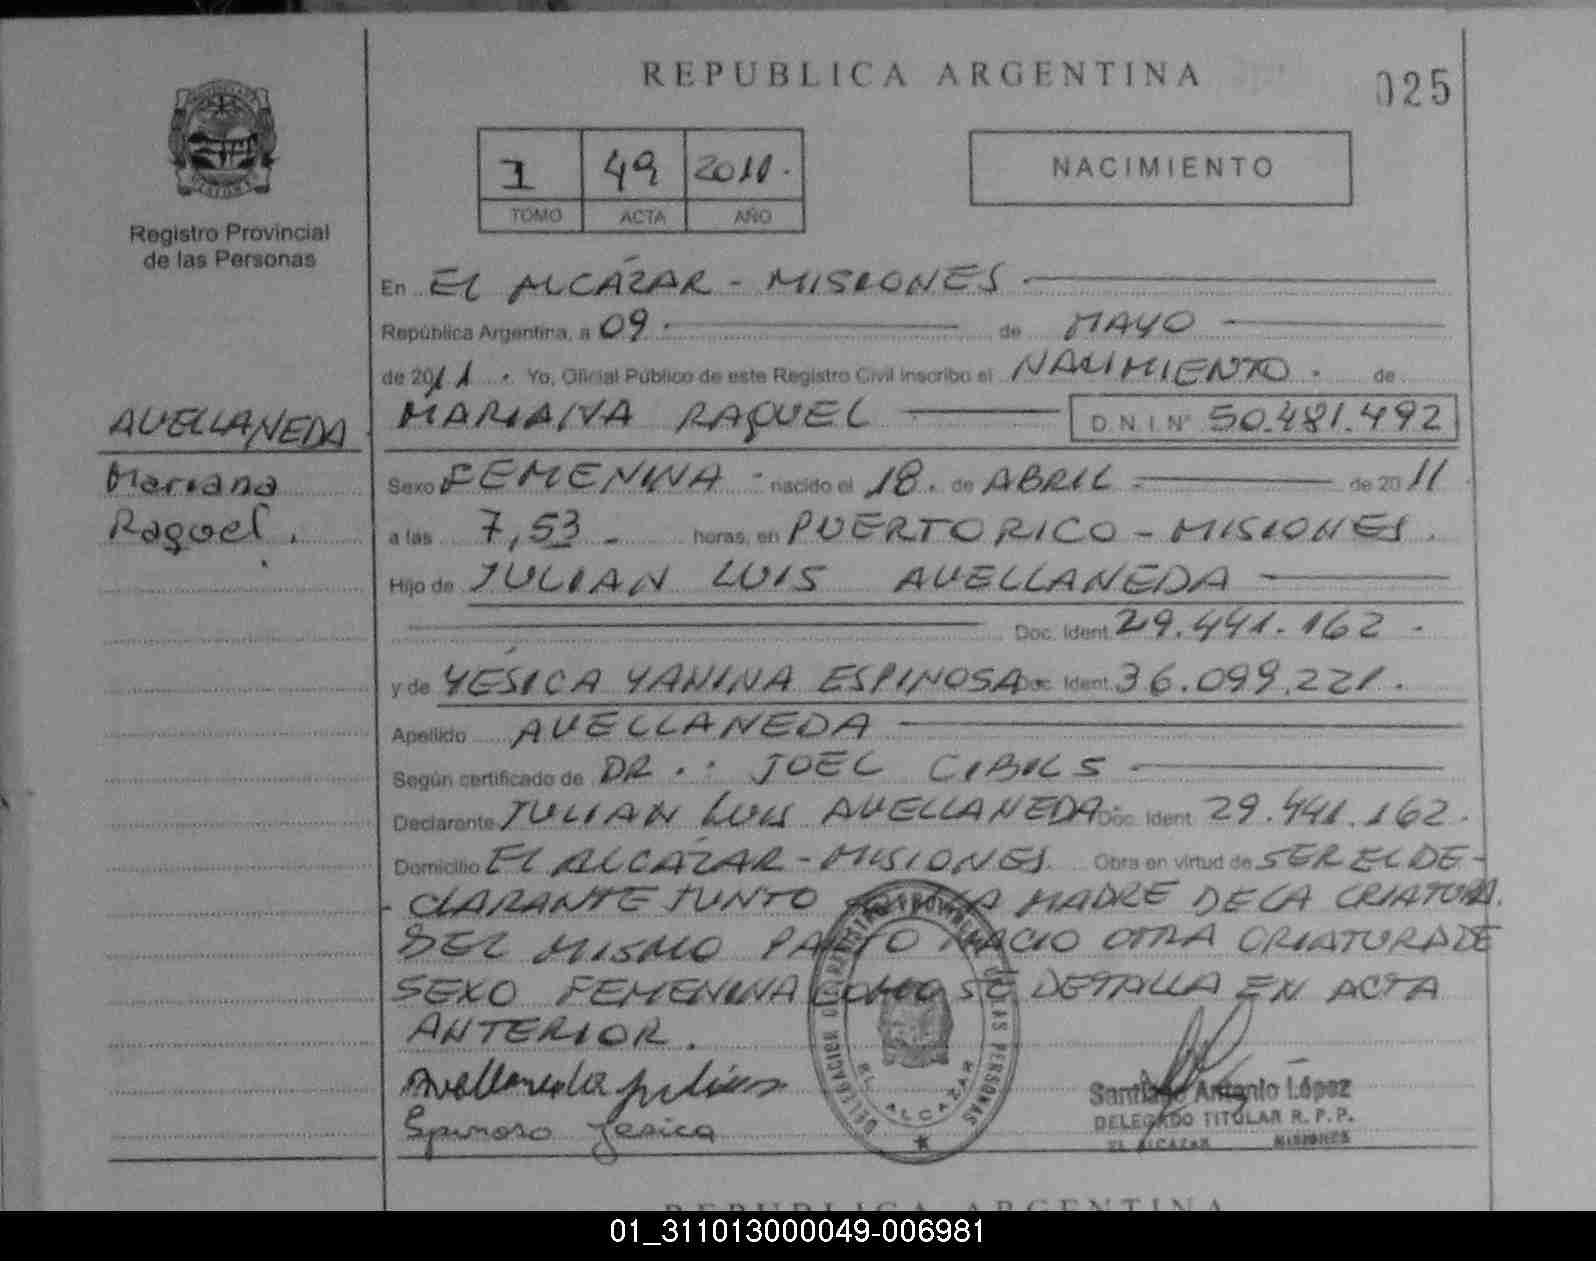 REPUBLICA ARGENTINA
025
Registro Provincial
de las Personas
1 49 2011.
TOMO ACTA AÑO
NACIMIENTO
En EL ALCÁZAR - MISIONES
República Argentina, a 09 de MAYO
de 2011. Yo, Oficial Público de este Registro Civil inscribo el NACIMIENTO. de
AVELLANEDA
Mariana
Raquel.
MARIANA RAQUEL D.N.I. Nº 50.481.492
Sexo FEMENINA - nacido el 18. de ABRIL - de 2011
a las 7,53 - horas, en PUERTO RICO - MISIONES.
Hijo de JULIAN LUIS AVELLANEDA
Doc. Ident. 29.441.162 -
y de YÉSICA YANINA ESPINOSA Doc. Ident. 36.099.221.
Apellido AVELLANEDA
Según certificado de DR. JOEL CIBILS
Declarante JULIAN LUIS AVELLANEDA Doc. Ident. 29.441.162.
Domicilio EL ALCÁZAR - MISIONES. Obra en virtud de SER EL DE-
- CLARANTE JUNTO A LA MADRE DE LA CRIATURA.
DEL MISMO PARTO NACIO OTRA CRIATURA DE
SEXO FEMENINA COMO SE DETALLA EN ACTA
ANTERIOR.
Avellaneda Julian
Spinoso Jesica
DELEGACION DEL REGISTRO PROVINCIAL DE LAS PERSONAS
EL ALCAZAR
Santiago Antonio López
DELEGADO TITULAR R.P.P.
EL ALCAZAR MISIONES
REPUBLICA ARGENTINA
01_311013000049-006981